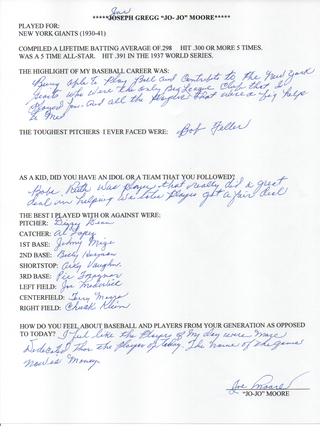 Joe
*****JOSEPH GREGG "JO- JO" MOORE*****
PLAYED FOR:
NEW YORK GIANTS (1930-41)
COMPILED A LIFETIME BATTING AVERAGE OF .298 HIT .300 OR MORE 5 TIMES.
WAS A 5 TIME ALL-STAR. HIT .391 IN THE 1937 WORLD SERIES.
THE HIGHLIGHT OF MY BASEBALL CAREER WAS:
Being able to Play Ball and Contribute to The New York
Giants who were the only Big League Club that I
Played for. And all the Players that were a big help
to Me
THE TOUGHEST PITCHERS I EVER FACED WERE: Bob Feller
AS A KID, DID YOU HAVE AN IDOL OR A TEAM THAT YOU FOLLOWED?
Babe Ruth was player that really did a great
deal in helping the player get a fair deal
THE BEST I PLAYED WITH OR AGAINST WERE:
PITCHER: Dizzy Dean
CATCHER: Al Lopez
1ST BASE: Johnny Mize
2ND BASE: Billy Herman
SHORTSTOP: Arky Vaughn
3RD BASE: Pie Traynor
LEFT FIELD: Joe Medwick
CENTERFIELD: Terry Moore
RIGHT FIELD: Chuck Klein
HOW DO YOU FEEL ABOUT BASEBALL AND PLAYERS FROM YOUR GENERATION AS OPPOSED
TO TODAY? I feel like the Players of My day were More
Dedicated Than the Players of today. The name of the game
now is Money.
Joe Moore
"JO-JO" MOORE